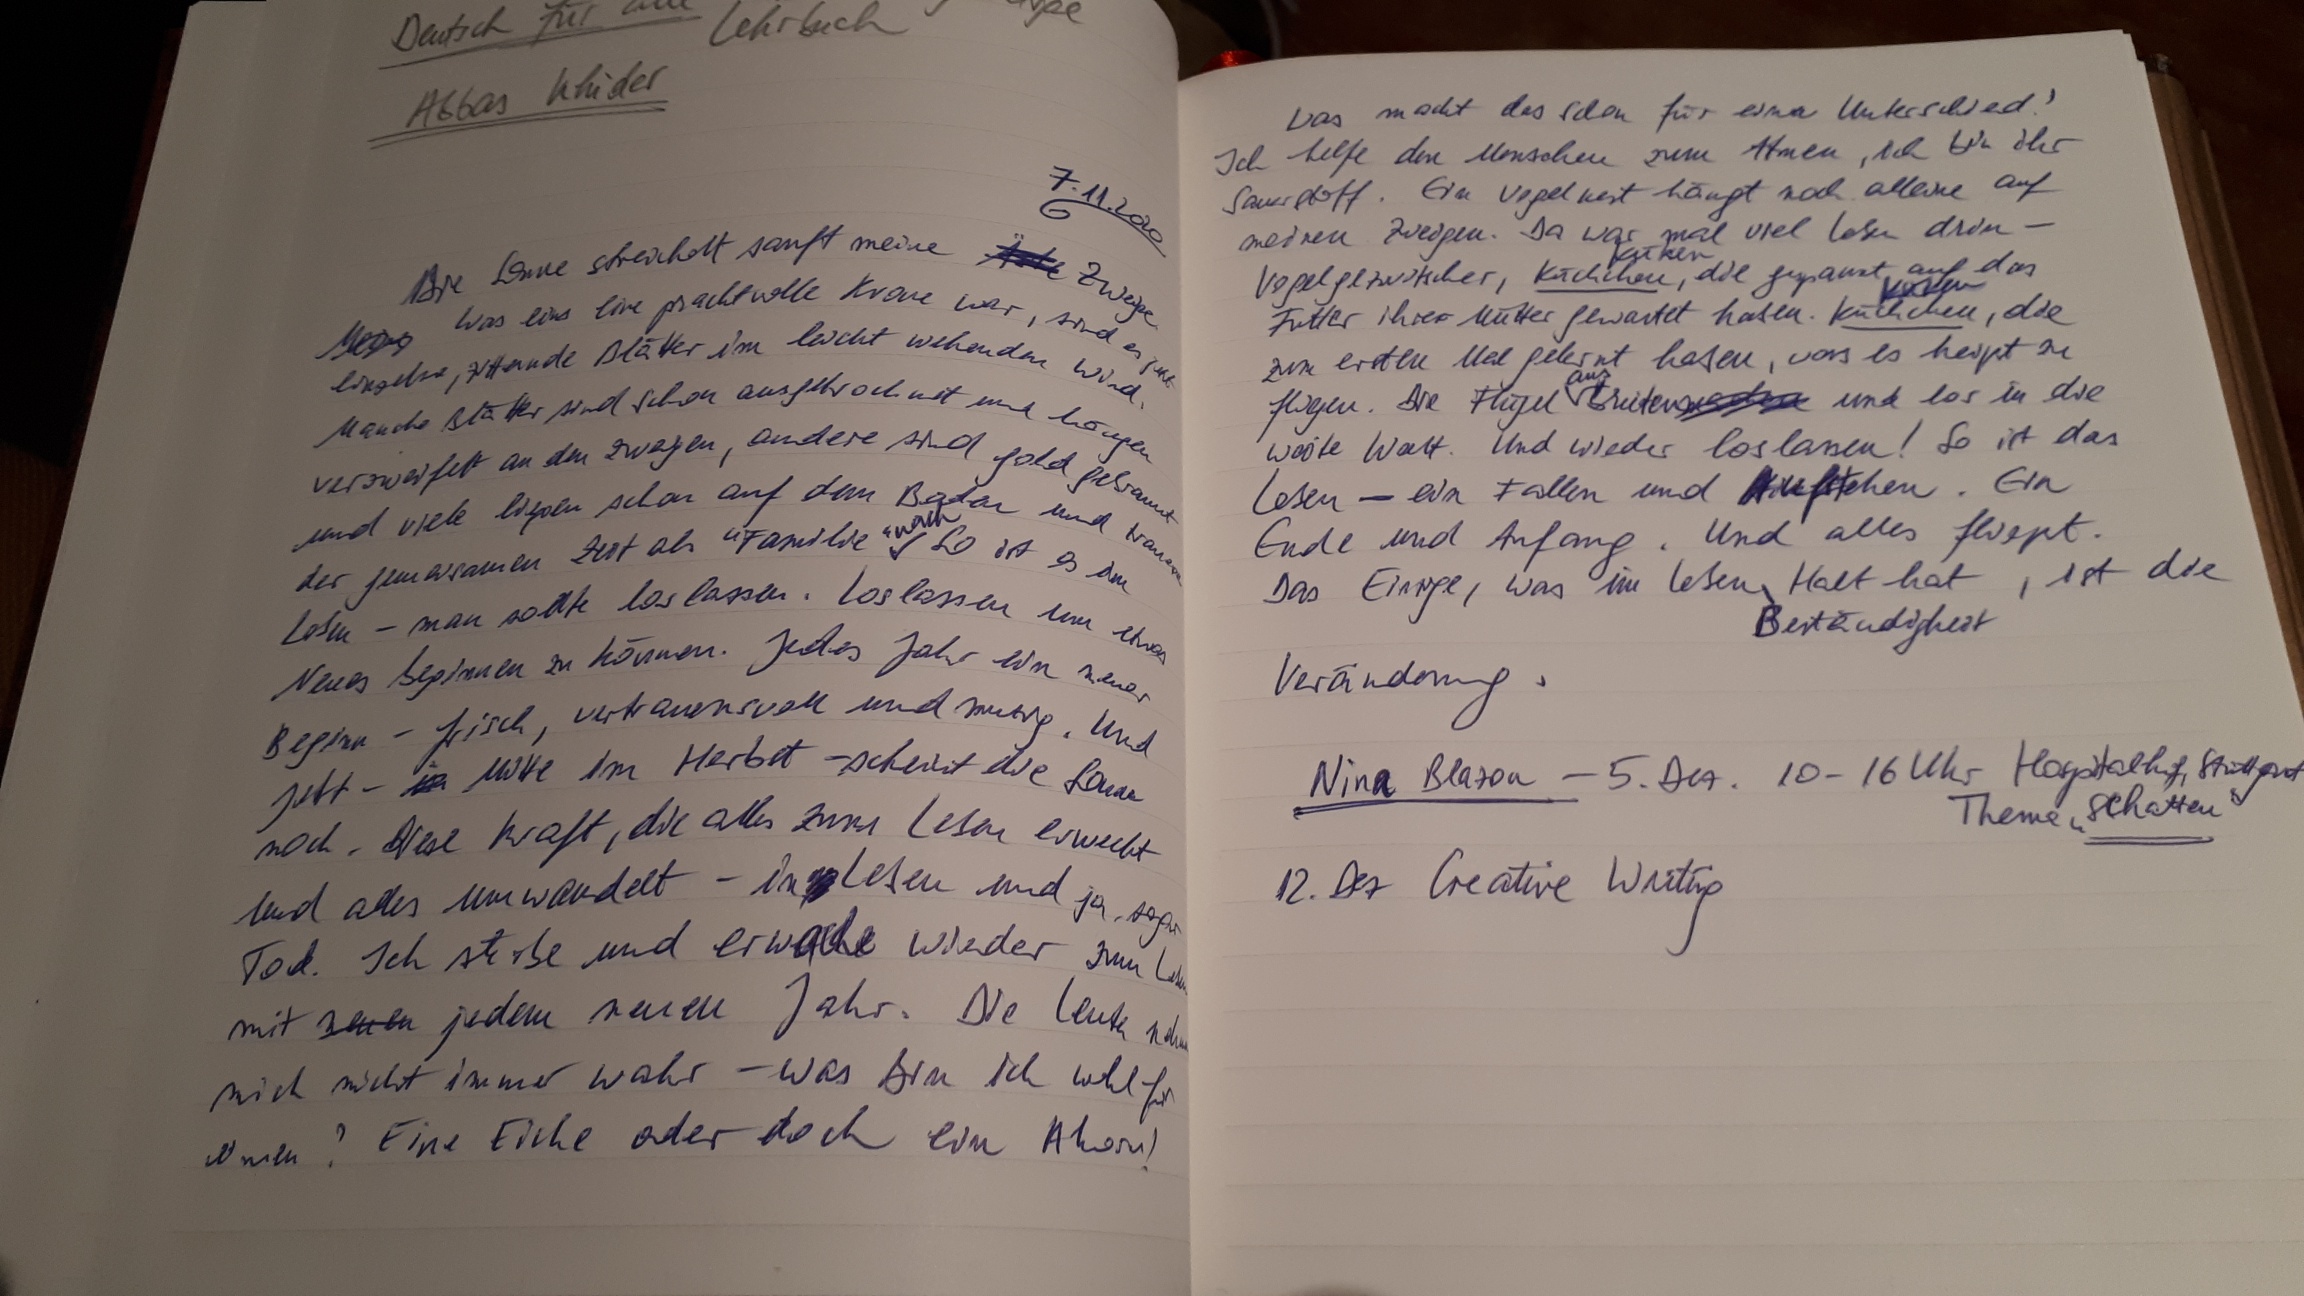 Deutsch für alle
Lehrbuch
Abbas Khider
7.11.2020
Die Sonne streichelt sanft meine Äste Zweige.
Was eins eine prachtvolle Krone war, sind es jetzt
einzelne, zitternde Blätter im leicht wehenden Wind.
Manche Blätter sind schon ausgetrocknet und hängen
verzweifelt an den Zweigen, andere sind gold gebrannt
und viele liegen schon auf dem Boden und trauern
der gemeinsamen Zeit als "Familie" nach. So ist es im
Leben – man sollte loslassen. Loslassen um etwas
Neues beginnen zu können. Jedes Jahr ein neuer
Beginn – frisch, vertrauensvoll und mutig. Und
jetzt – in Mitte im Herbst – scheint die Sonne
noch. Diese Kraft, die alles zum Leben erweckt
und alles umwandelt – in Leben und ja, sogar
Tod. Ich sterbe und erwache wieder zum Leben
mit jedem neuen Jahr. Die Leute nehmen
mich nicht immer wahr – was bin ich wohl für
ihnen? Eine Eiche oder doch ein Ahorn!
Was macht das schon für einen Unterschied!
Ich helfe den Menschen zum Atmen, ich bin ihr
Sauerstoff. Ein Vogelnest hängt noch alleine auf
meinen Zweigen. Da war mal viel Leben drin –
Küken
Vogelgezwitscher, Küchchen, die gespannt auf das
Küken
Futter ihrer Mutter gewartet haben. Küchchen, die
zum ersten Mal gelernt haben, was es heißt zu
fliegen. Die Flügel ausbreiten und los in die
weite Welt. Und wieder loslassen! So ist das
Leben – ein Fallen und Aufstehen. Ein
Ende und Anfang. Und alles fließt.
Das Einzige, was im Leben Halt hat, ist die
Beständigkeit
Veränderung.
Nina Blazon – 5. Dez. 10-16 Uhr Hospitalhof, Stuttgart
Thema „Schatten“
12. Dez Creative Writing